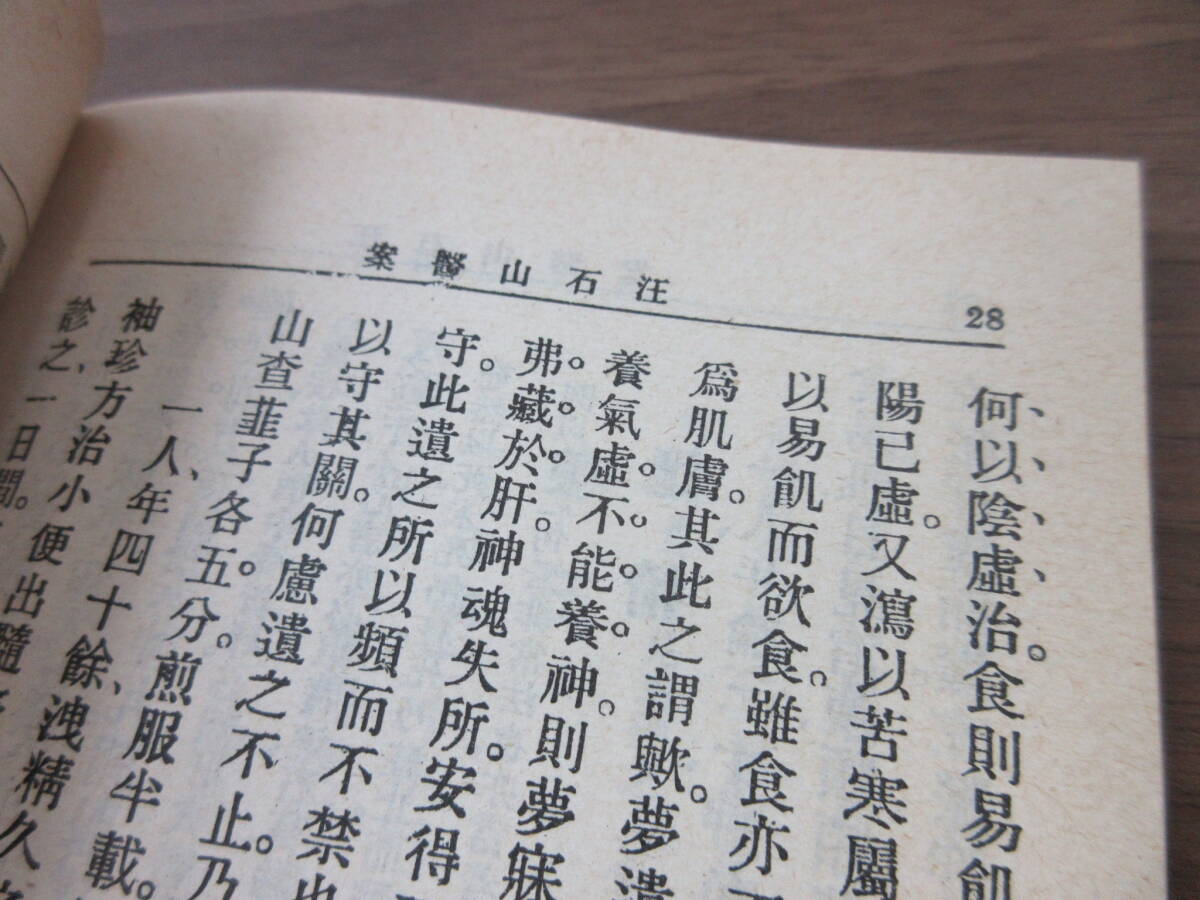 28
汪石山醫案
何以陰虛治。食則易飢
陽已虛。又瀉以苦寒屬
以易飢而欲食。雖食亦
爲肌膚。其此之謂歟。夢遺
養氣虛。不能養神。則夢寐
弗藏於肝。神魂失所。安得
守。此遺之所以頻而不禁也
以守其關。何慮遺之不止。乃
山查韮子各五分。煎服半載。
一人、年四十餘、洩精久
袖珍方治小便出隨
診之、一日間。